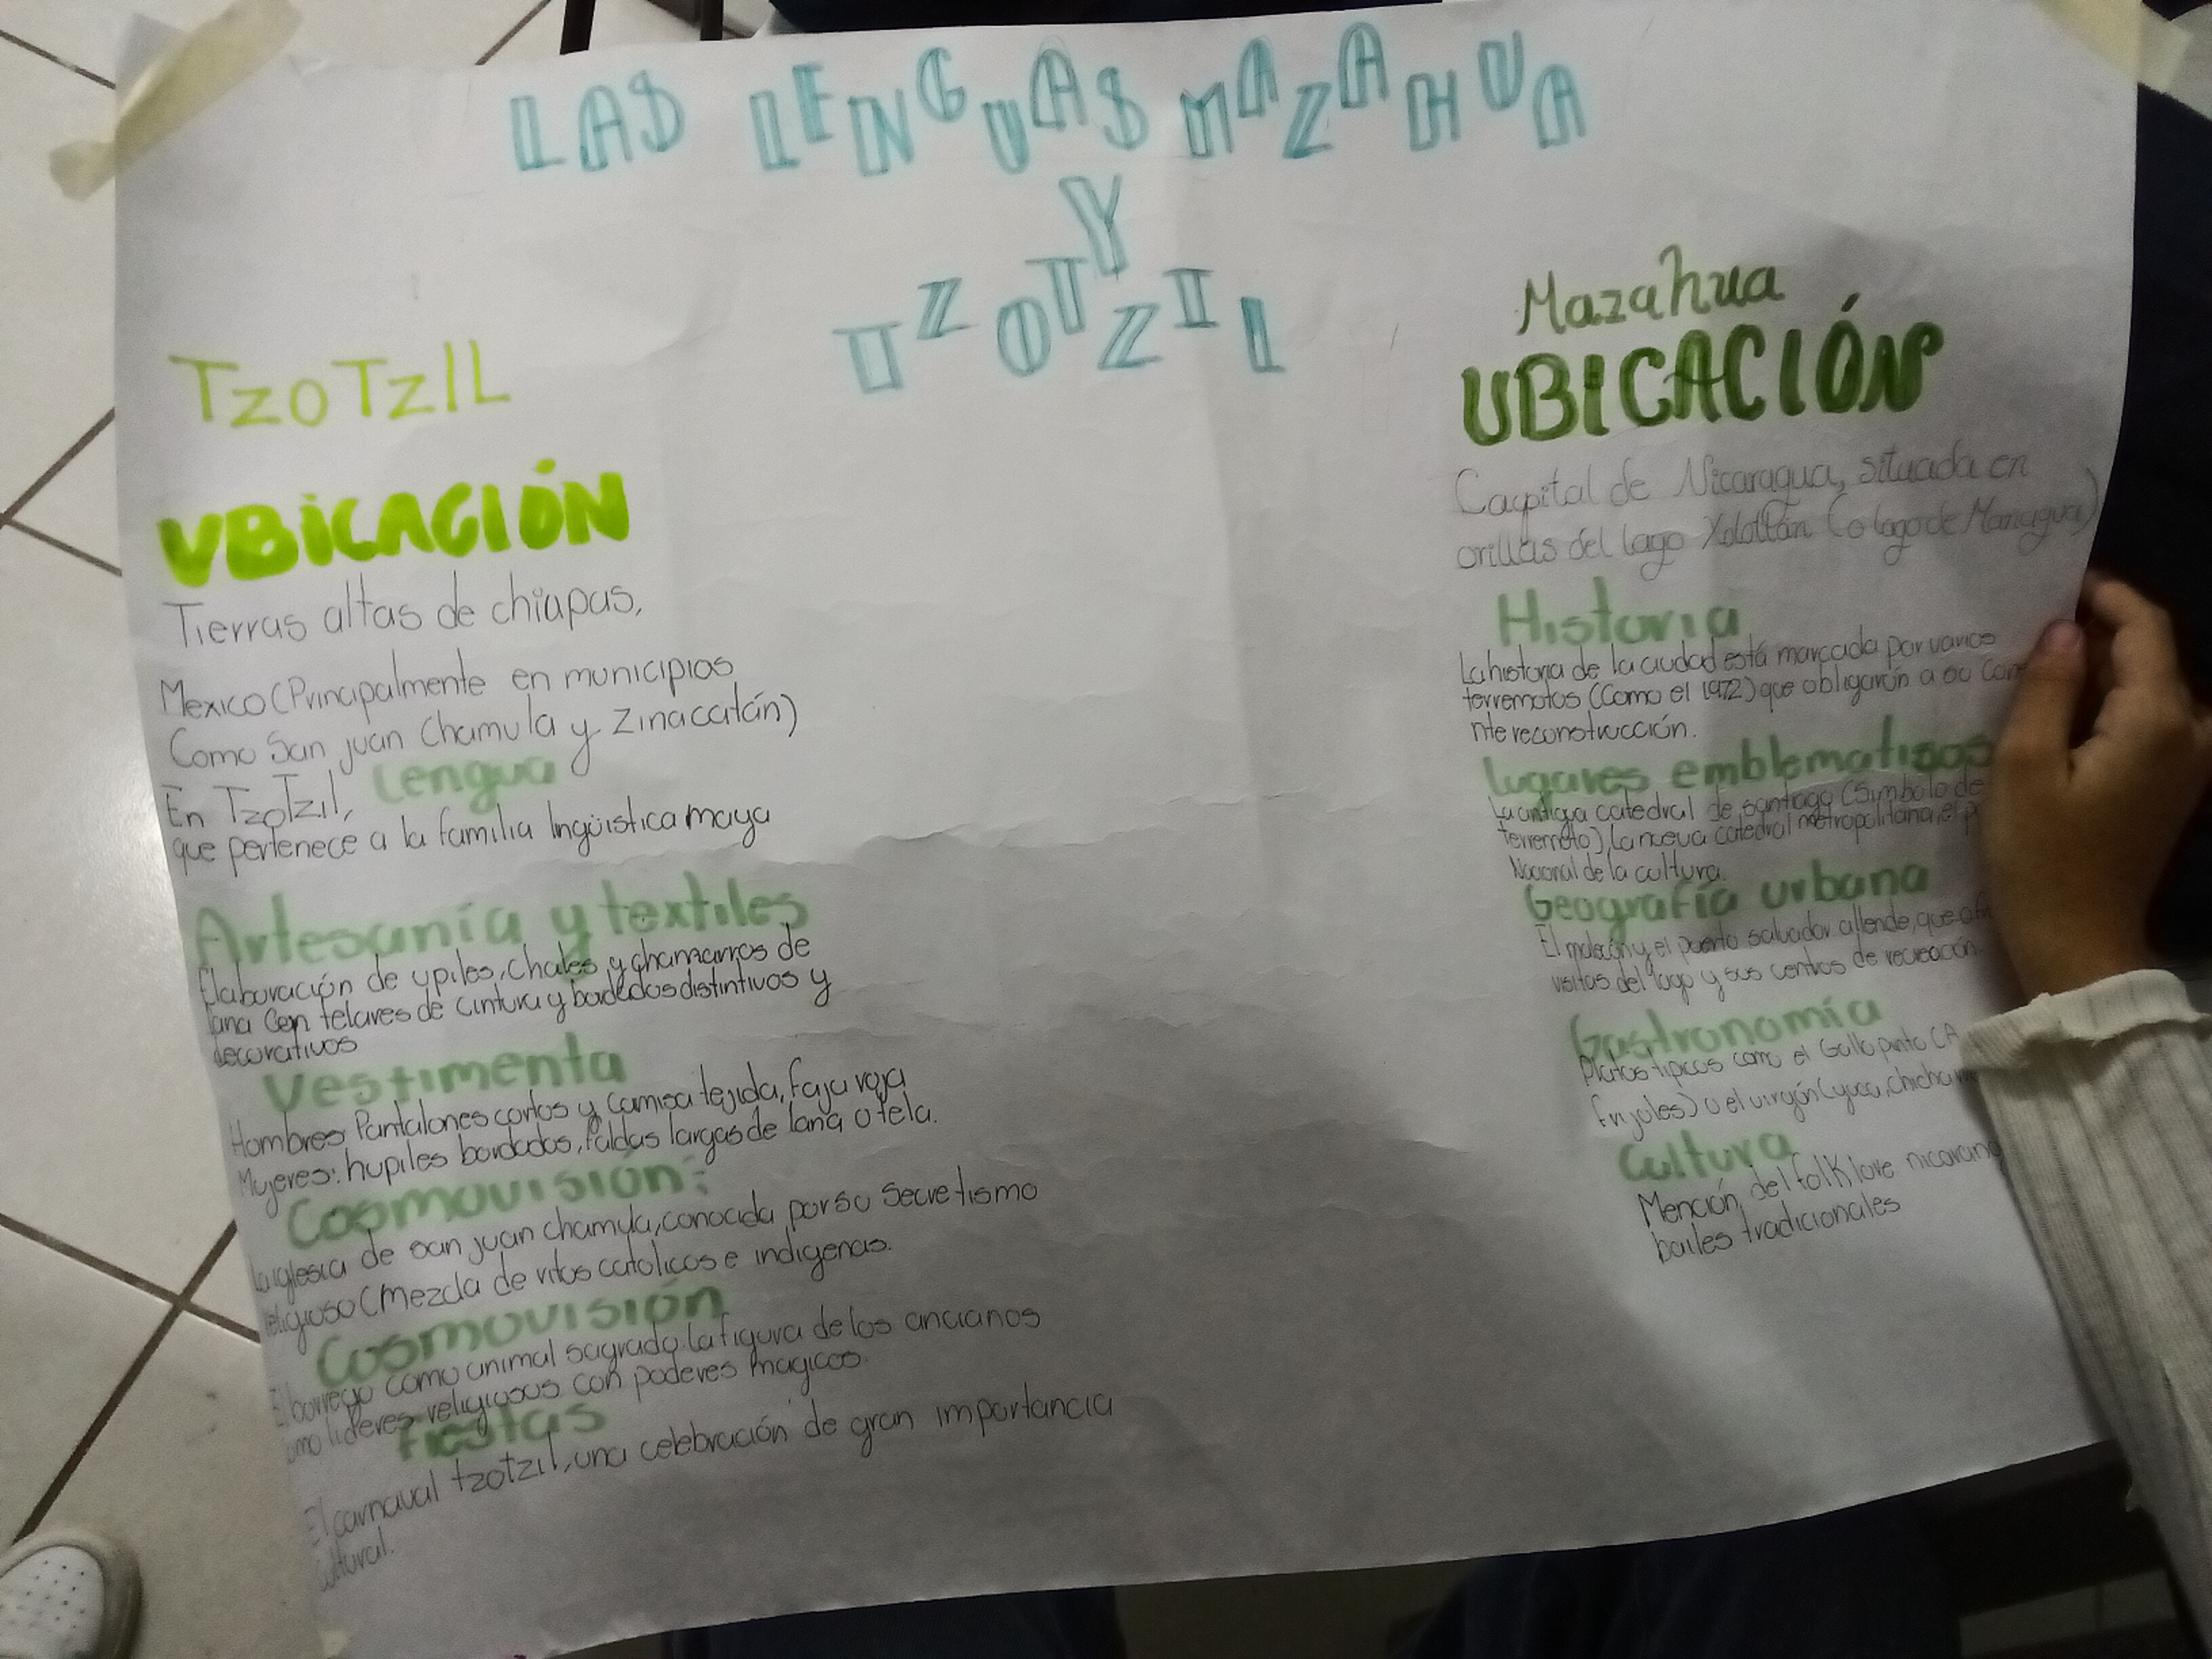 LAS LENGUAS MAZAHUA
Y
TZOTZIL
TzoTzIL
UBiCACIÓN
Tierras altas de chiapas,
Mexico (Principalmente en municipios
Como San juan Chamula y Zinacatán)
Lengua
En TzoTzil,
que pertenece a la familia lngüística maya
Artesanía y textiles
Elaboración de upiles, chales y chamarros de
lana Con telares de cintura y bordados distintivos y
decorativos
Vestimenta
Hombres Pantalones cortos y camisa tejida, faja roja
Mujeres: hupiles bordados, faldas largas de lana o tela.
Cosmovisión:
La iglesia de san juan chamula, conocida por su Secretismo
religioso (Mezcla de ritos catolicos e indigenas.
Cosmovisión
El borrego como animal sagrado. La figura de los ancianos
como lideres religiosos con poderes magicos.
Fiestas
El carnaval tzotzil, una celebración de gran importancia
cultural.
Mazahua
UBiCACIÓN
Capital de Nicaragua, situada en
orillas del lago Xolotlán (o lago de Managua)
Historia
La historia de la ciudad está marcada por varios
terremotos (Como el 1972) que obligarón a su
nte reconstrucción.
lugares emblematisos
La antigua catedral de santiago (Simbolo de
terremoto), La nueva catedral metropolitana, el
Nacional de la cultura.
Geografía urbana
El malecón y el puerto salvador allende, que
visitas del lago y sus centros de recreación.
Gastronomía
Platos tipicos como el Gallo pinto
frijoles) o el virgón (yuca,
Cultura
Mención del folklore
bailes tradicionales